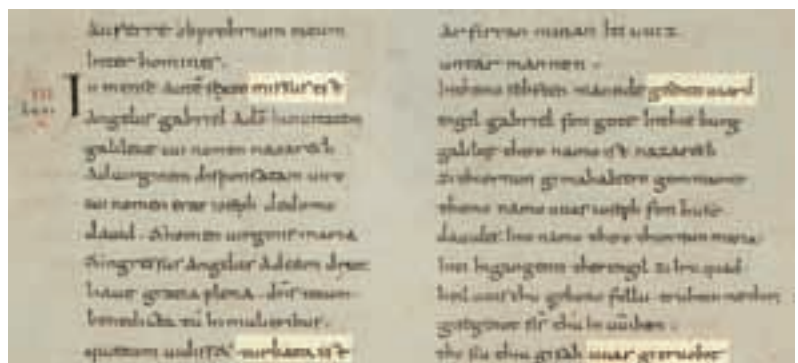 auferre obprobrium meum
inter homines.
In mense autē sexto missus est
angelus gabriel a dō in ciuitatem
galileae cui nomen nazareth
ad uirginem desponsatam uiro
cui nomen erat ioseph de domo
dauid. & nomen uirginis maria
& ingressus angelus ad eam dixit
haue gratia plena dn̄s tecum
benedicta tū in mulieribus.
turbata est
arfirran minan
untar mannon.
In themo sehsten manude gisentit uuard
engil gabriel fon gote in thie burg
galilee thero namo ist nazareth
zi thiornun gimahaltero gommanne
themo namo uuas ioseph fon huse
dauides inti namo thero thiornun maria
Inti ingangenti ther engil zi iru quad
heil uuis thu gebono follu truhtin
gisegenot sīs thū in uuibun.
tho siu thiu gisah uuas gitruobit